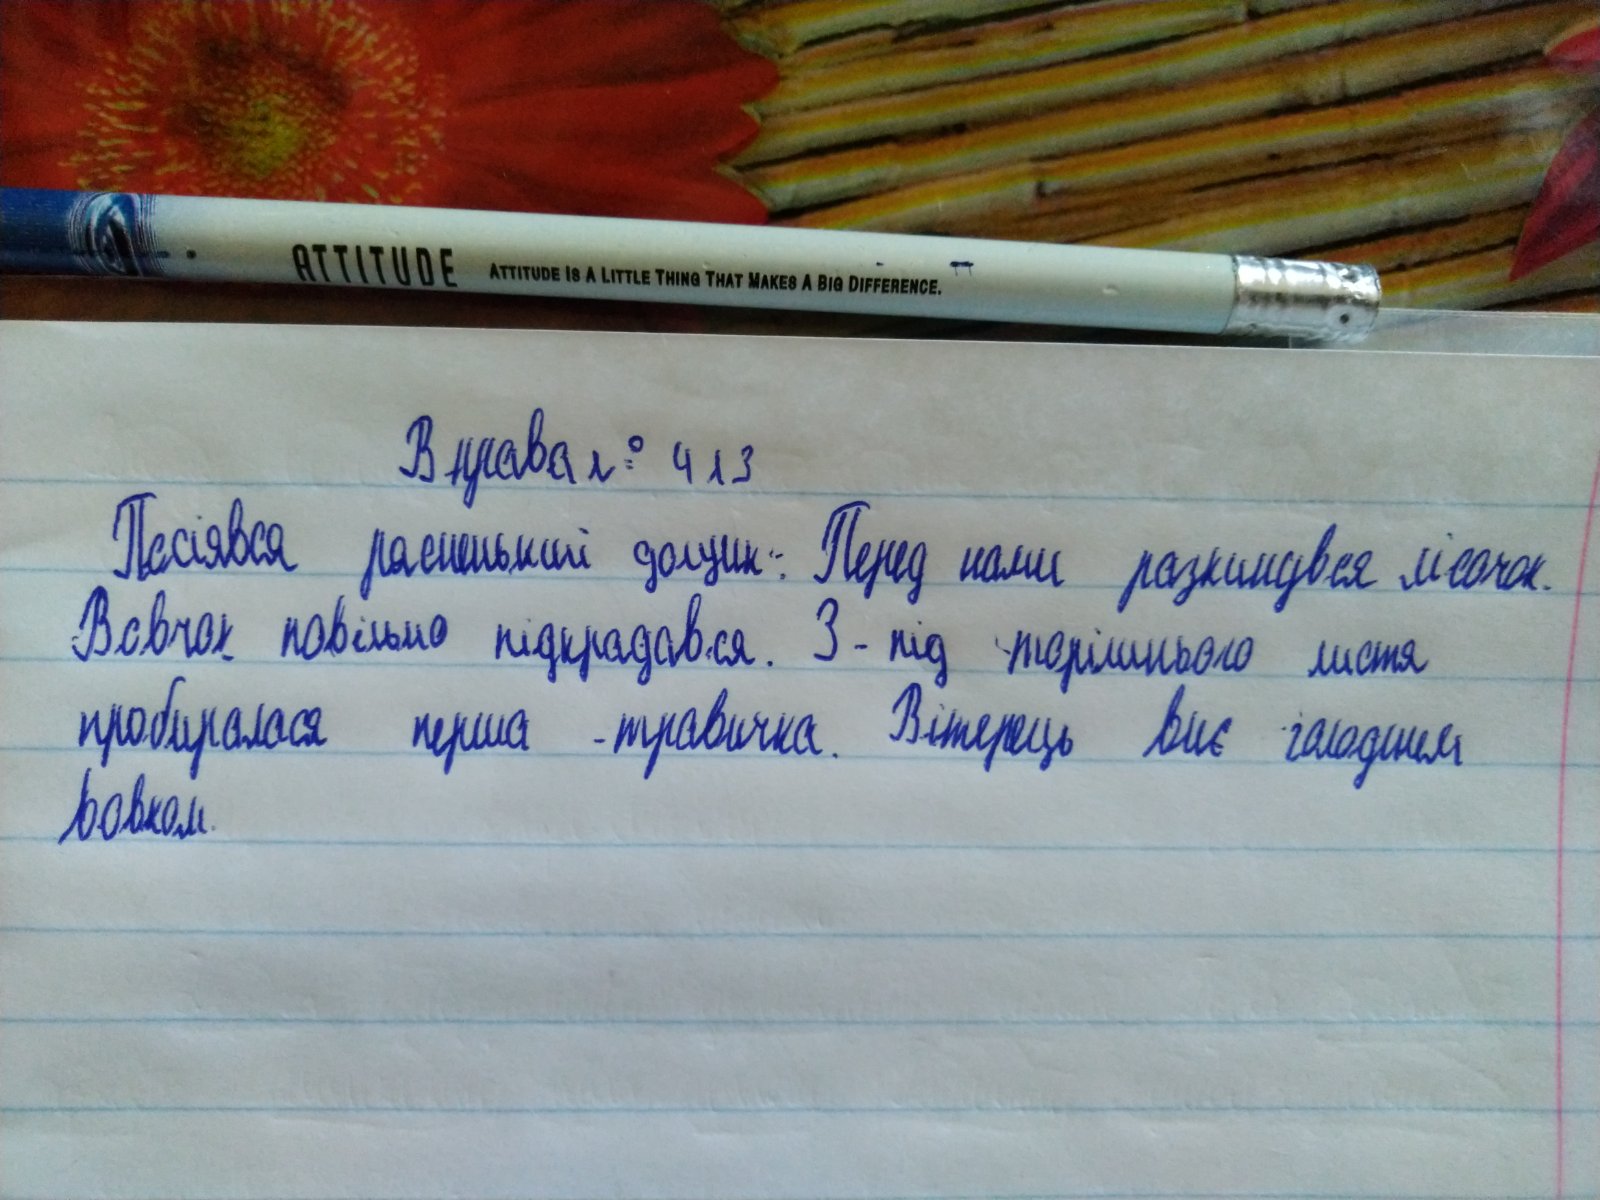 ATTITUDE ATTITUDE IS A LITTLE THING THAT MAKES A BIG DIFFERENCE.
Вправа №413
Посіявся рясненький дощик. Перед нами разкинувся лісочок.
Вовчок повільно підкрадався. З-під торішнього листя
пробиралася перша травичка. Вітерець виє голодним
вовком.